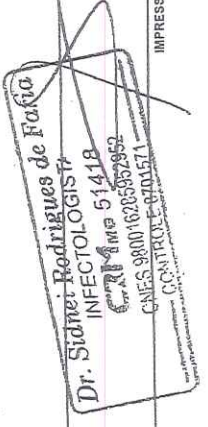 Dr. Sidnei Rodrigues de Faria
INFECTOLOGISTA
CRM MG 51418
CNES 980016285952952
CONTROLE 0701571
IMPRESS